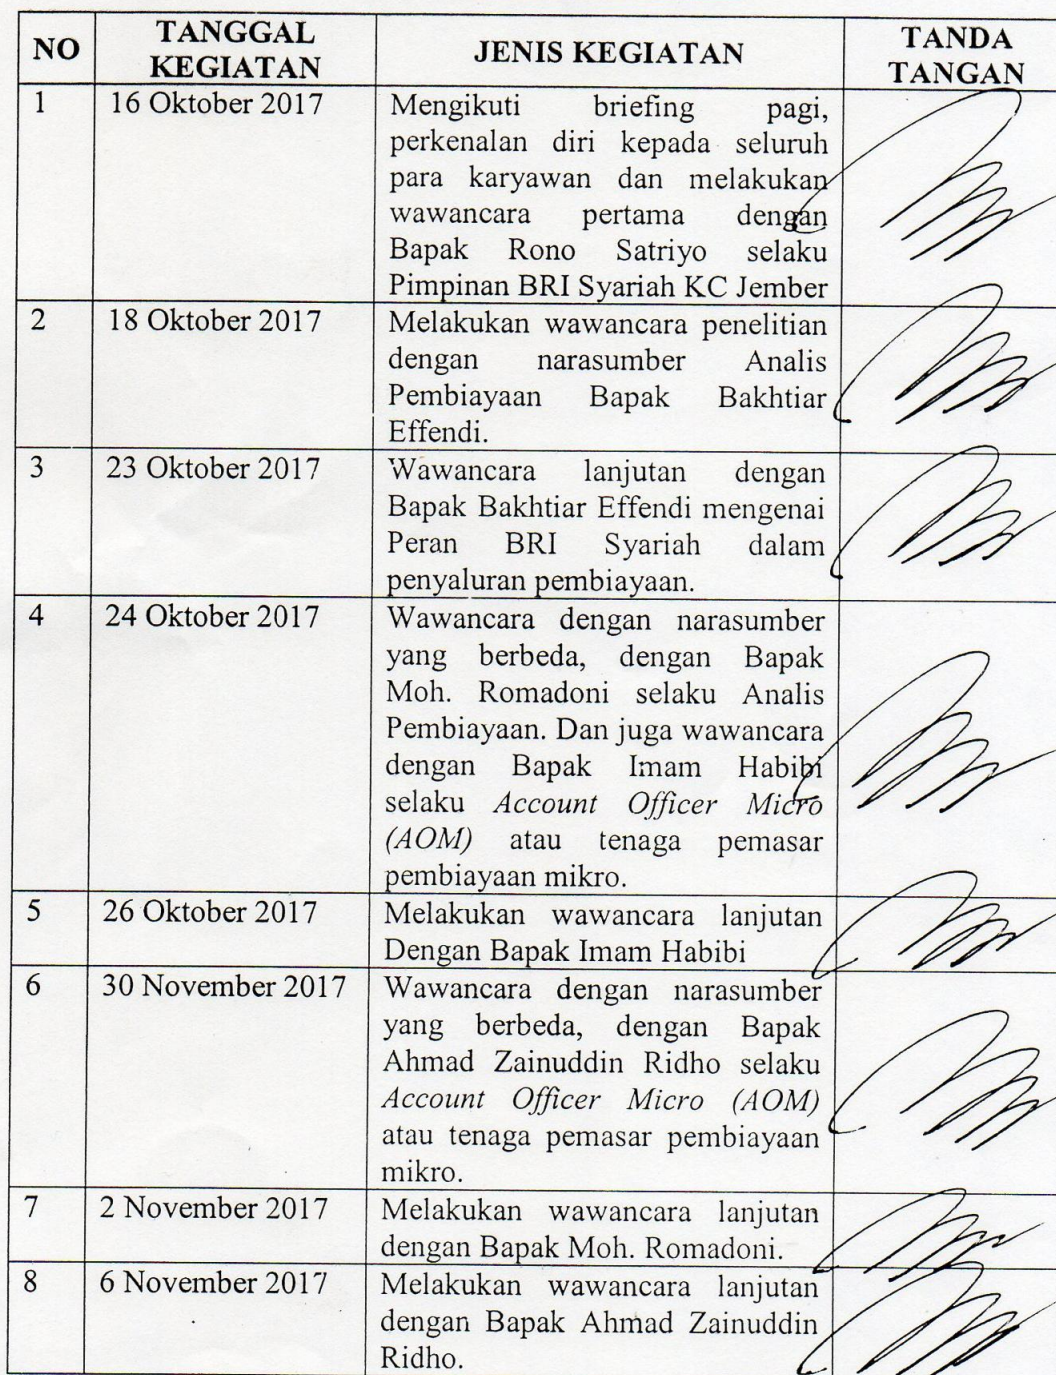 NO
TANGGAL
KEGIATAN
JENIS KEGIATAN
TANDA
TANGAN
1
16 Oktober 2017
Mengikuti briefing pagi,
perkenalan diri kepada seluruh
para karyawan dan melakukan
wawancara pertama dengan
Bapak Rono Satriyo selaku
Pimpinan BRI Syariah KC Jember
2
18 Oktober 2017
Melakukan wawancara penelitian
dengan narasumber Analis
Pembiayaan Bapak Bakhtiar
Effendi.
3
23 Oktober 2017
Wawancara lanjutan dengan
Bapak Bakhtiar Effendi mengenai
Peran BRI Syariah dalam
penyaluran pembiayaan.
4
24 Oktober 2017
Wawancara dengan narasumber
yang berbeda, dengan Bapak
Moh. Romadoni selaku Analis
Pembiayaan. Dan juga wawancara
dengan Bapak Imam Habibi
selaku Account Officer Micro
(AOM) atau tenaga pemasar
pembiayaan mikro.
5
26 Oktober 2017
Melakukan wawancara lanjutan
Dengan Bapak Imam Habibi
6
30 November 2017
Wawancara dengan narasumber
yang berbeda, dengan Bapak
Ahmad Zainuddin Ridho selaku
Account Officer Micro (AOM)
atau tenaga pemasar pembiayaan
mikro.
7
2 November 2017
Melakukan wawancara lanjutan
dengan Bapak Moh. Romadoni.
8
6 November 2017
Melakukan wawancara lanjutan
dengan Bapak Ahmad Zainuddin
Ridho.